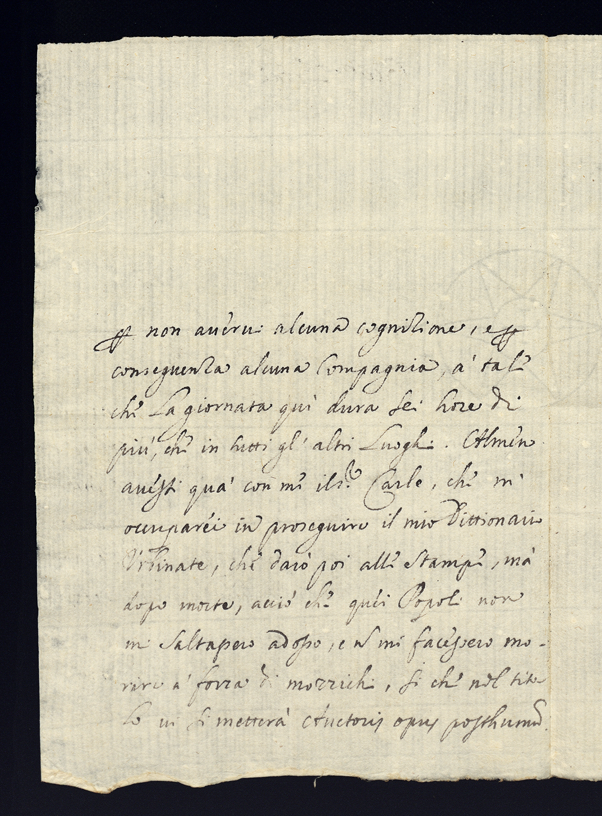 non avervi alcuna cognitione, e
conseguenza alcuna Compagnia, à tale
che la giornata quì dura sei hore di
più, che in tutti gl'altri Luoghi. Almen
avessi quà con me il Sr. Carle, che m'
occuparei in proseguire il mio Dittionario
Urbinate, che darò poi alle stampe, mà
dopo morte, acciò che quei Popoli non
mi saltassero adosso, e mi facessero mo-
rire a forza di mozzichi, si che nel tito
lo vi si metterà Auctoris opus posthumũ